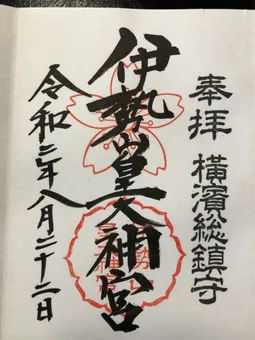 奉拝 横濱総鎮守
伊勢山皇大神宮
令和二年八月二十二日